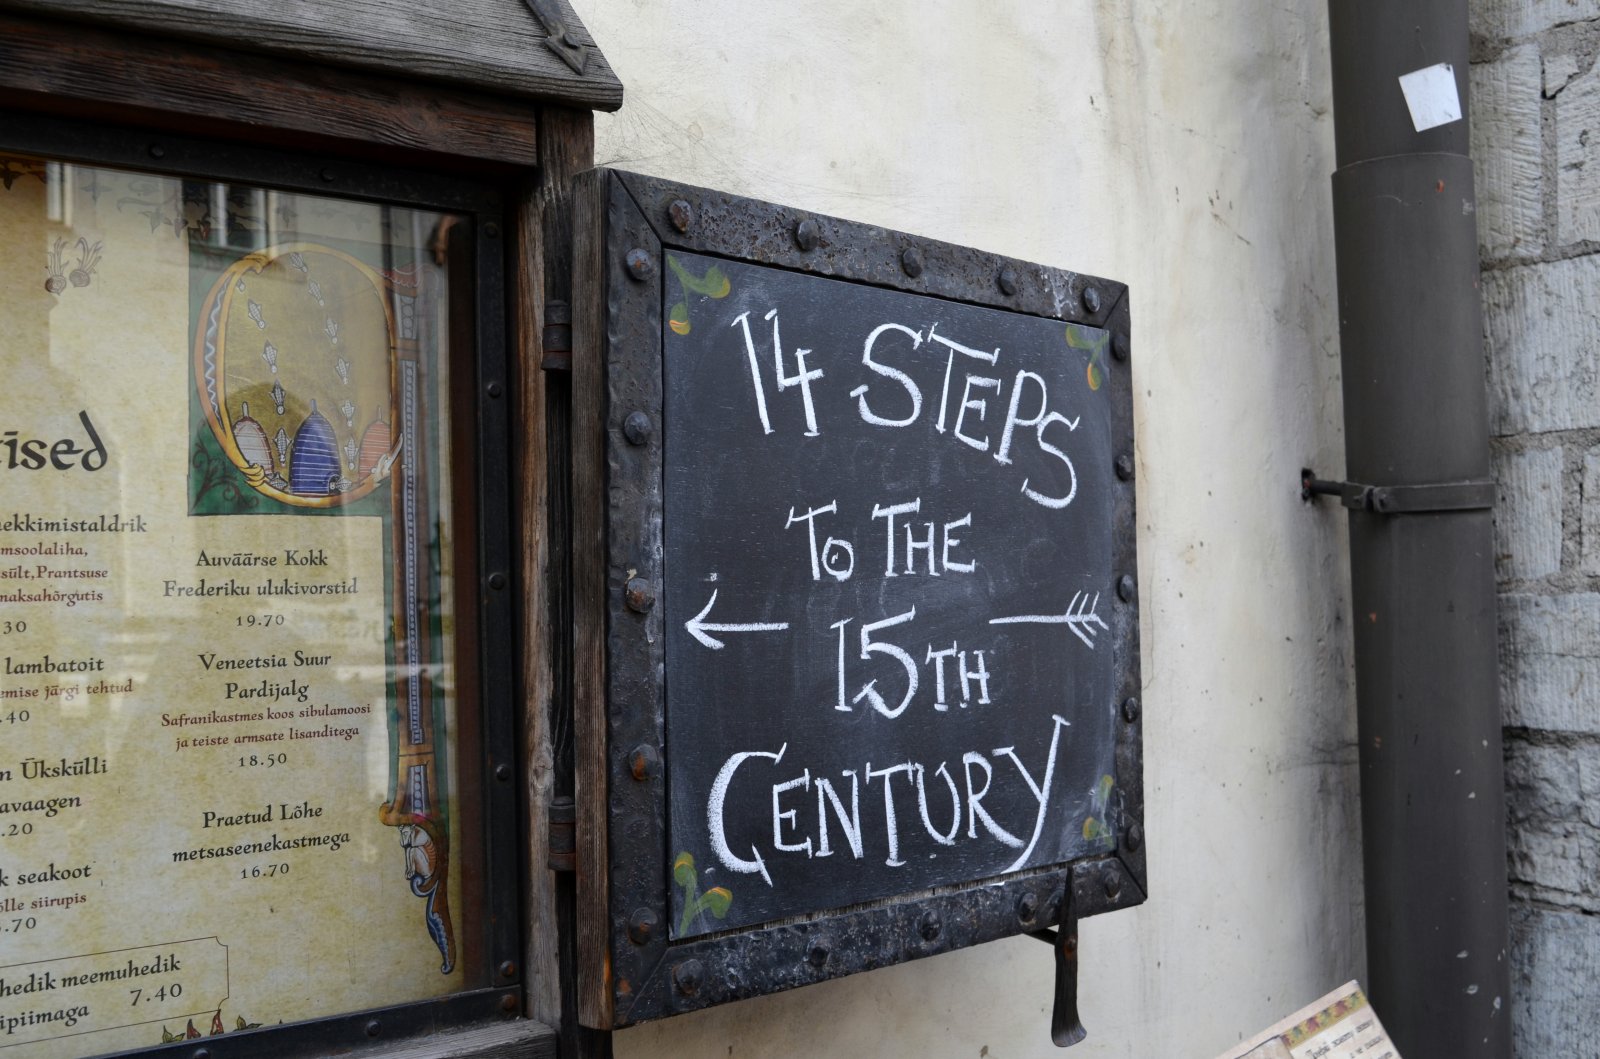 ised
ekkimistaldrik
msoolaliha,
sült, Prantsuse
naksahõrgutis
30
lambatoit
emise järgi tehtud
.40
n Ükskülli
avaagen
.20
k seakoot
õlle siirupis
.70
hedik meemuhedik
ipiimaga 7.40
Auväärse Kokk
Frederiku ulukivorstid
19.70
Veneetsia Suur
Pardijalg
Safranikastmes koos sibulamoosi
ja teiste armsate lisanditega
18.50
Praetud Lõhe
metsaseenekastmega
16.70
14 STEPS
TO THE
15TH
CENTURY